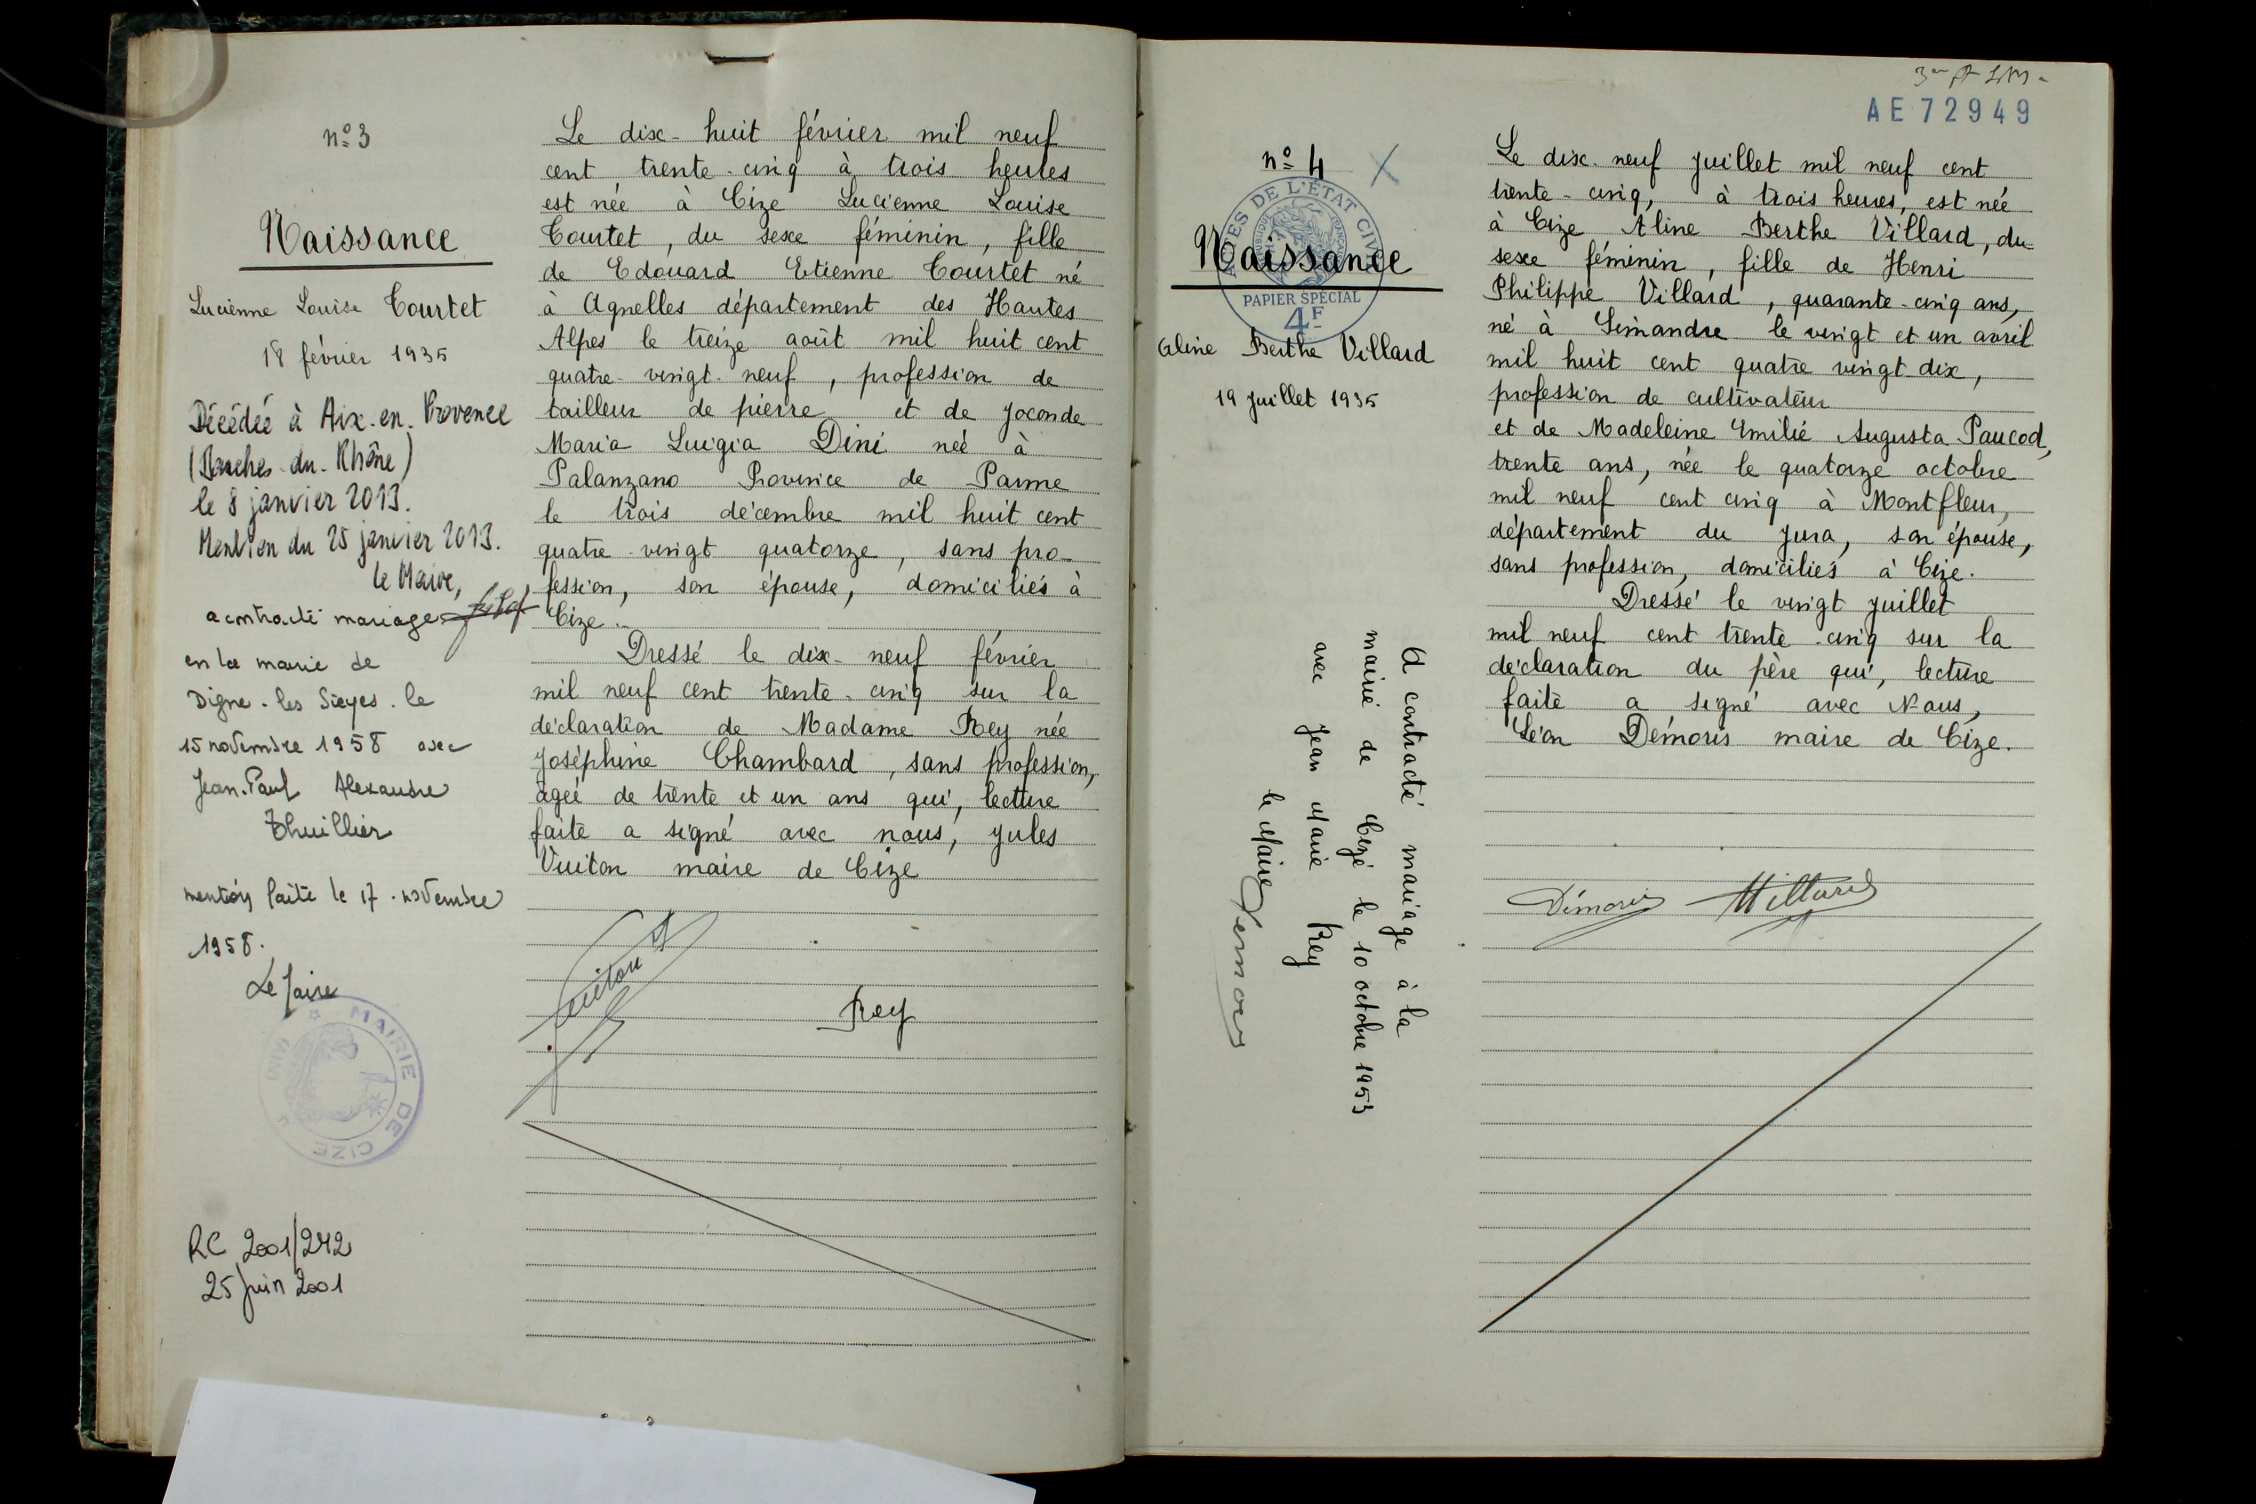 nº 3
Naissance
Lucienne Louise Courtet
18 février 1935
Décédée à Aix-en-Provence
(Bouches-du-Rhône)
le 8 janvier 2013.
Mention du 25 janvier 2013.
le Maire,
a contracté mariage
en la mairie de
Digne-les Sieyes. le
15 novembre 1958 avec
Jean-Paul Alexandre
Thuillier
mention faite le 17 novembre
1958.
Le Maire
MAIRIE DE CIZE (AIN)
RC 2001/242
25 juin 2001
Le dix-huit février mil neuf
cent trente-cinq à trois heures
est née à Cize Lucienne Louise
Courtet, du sexe féminin, fille
de Edouard Etienne Courtet né
à Agnelles département des Hautes
Alpes le treize août mil huit cent
quatre-vingt-neuf, profession de
tailleur de pierre et de Joconde
Maria Luigia Dini née à
Palanzano Province de Parme
le trois décembre mil huit cent
quatre-vingt quatorze, sans pro-
fession, son épouse, domiciliés à
Cize.
Dressé le dix-neuf février
mil neuf cent trente-cinq sur la
déclaration de Madame Rey née
Joséphine Chambard, sans profession,
agée de trente et un ans qui, lecture
faite a signé avec nous, Jules
Vuiton maire de Cize
Vuiton
Rey
AE 72949
nº 4
ACTES DE L'ÉTAT CIVIL
Naissance
PAPIER SPÉCIAL
4F
Aline Berthe Villard
19 juillet 1935
A contracté mariage à la
mairie de Cize le 10 octobre 1953
avec Jean Marie Rey
le Maire
Le dix-neuf juillet mil neuf cent
trente-cinq, à trois heures, est née
à Cize Aline Berthe Villard, du
sexe féminin, fille de Henri
Philippe Villard, quarante-cinq ans,
né à Simandre le vingt et un avril
mil huit cent quatre vingt dix,
profession de cultivateur
et de Madeleine Emilie Augusta Paucod,
trente ans, née le quatorze octobre
mil neuf cent cinq à Montfleur,
département du Jura, son épouse,
sans profession, domiciliés à Cize.
Dressé le vingt juillet
mil neuf cent trente-cinq sur la
déclaration du père qui, lecture
faite a signé avec Nous,
Léon Démoris maire de Cize.
Démoris HVillard